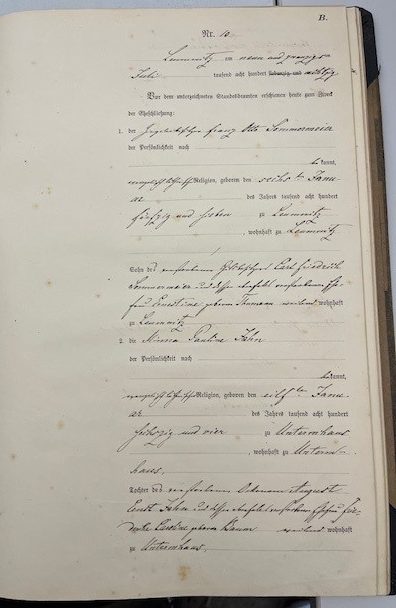 B.
Nr. 10
Leumnitz am neun und zwanzigsten
Juli tausend acht hundert siebenzig und achtzig
Vor dem unterzeichneten Standesbeamten erschienen heute zum Zweck
der Eheschließung:
1. der Franz Otto Sommermeier
der Persönlichkeit nach
bekannt,
Religion, geboren den sechsten Janu-
ar des Jahres tausend acht hundert
fünfzig und sieben zu Leumnitz
, wohnhaft zu Leumnitz
Sohn des verstorbenen Carl Friedrich
Sommermeier und dessen verstorbenen Ehe-
frau Ernestine geborene wohnhaft
zu Leumnitz
2. die Minna Pauline Jahn
der Persönlichkeit nach
bekannt,
Religion, geboren den eilften Janu-
ar des Jahres tausend acht hundert
sechszig und vier zu Untermhaus
, wohnhaft zu Unterm-
haus,
Tochter des verstorbenen Oekonomen August
Ernst Jahn und dessen verstorbenen Ehefrau Frie-
derike geborene wohnhaft
zu Untermhaus,